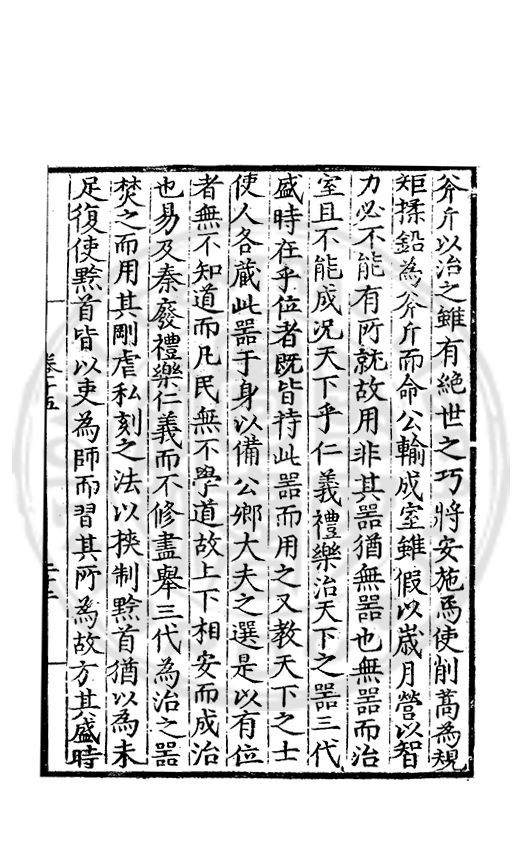 斧斤以治之雖有絶世之巧將安施焉使削蒿為規
矩揉鉛為斧斤而命公輸成室雖假以歲月營以智
力必不能有所就故用非其器猶無噐也無噐而治
室且不能成况天下乎仁義禮樂治天下之噐三代
盛時在乎位者既皆持此噐而用之又教天下之士
使人各蔵此噐于身以備公鄉大夫之選是以有位
者無不知道而凡民無不學道故上下相安而成治
也易及秦廢禮樂仁義而不修盡舉三代為治之噐
焚之而用其剛虐私刻之法以挾制黔首猶以為未
足復使黔首皆以吏為師而習其所為故方其盛時
卷十五